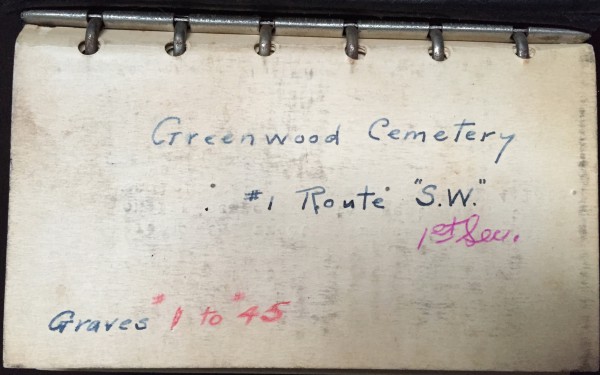 Greenwood Cemetery
#1 Route "S.W."
1st Sec.
Graves #1 to #45